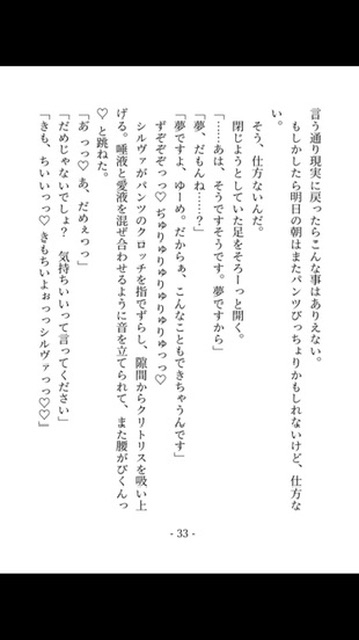 言う通り現実に戻ったらこんな事はありえない。
もしかしたら明日の朝はまたパンツびっちょりかもしれないけど、仕方な
い。
そう、仕方ないんだ。
閉じようとしていた足をそろーっと開く。
「……あは、そうですそうです。夢ですから」
「夢、だもんね……?」
「夢ですよ、ゆーめ。だからぁ、こんなこともできちゃうんです」
ずぞぞぞっっ♡ぢゅりゅりゅりゅりゅりゅっっ♡
シルヴァがパンツのクロッチを指でずらし、隙間からクリトリスを吸い上
げる。唾液と愛液を混ぜ合わせるように音を立てられて、また腰がびくんっ
♡と跳ねた。
「あ゛っっ♡あ、だめぇっっ」
「だめじゃないでしょ? 気持ちいいって言ってください」
「きも、ちいいっっ♡きもちいよぉっっシルヴァっっ♡♡」
- 33 -